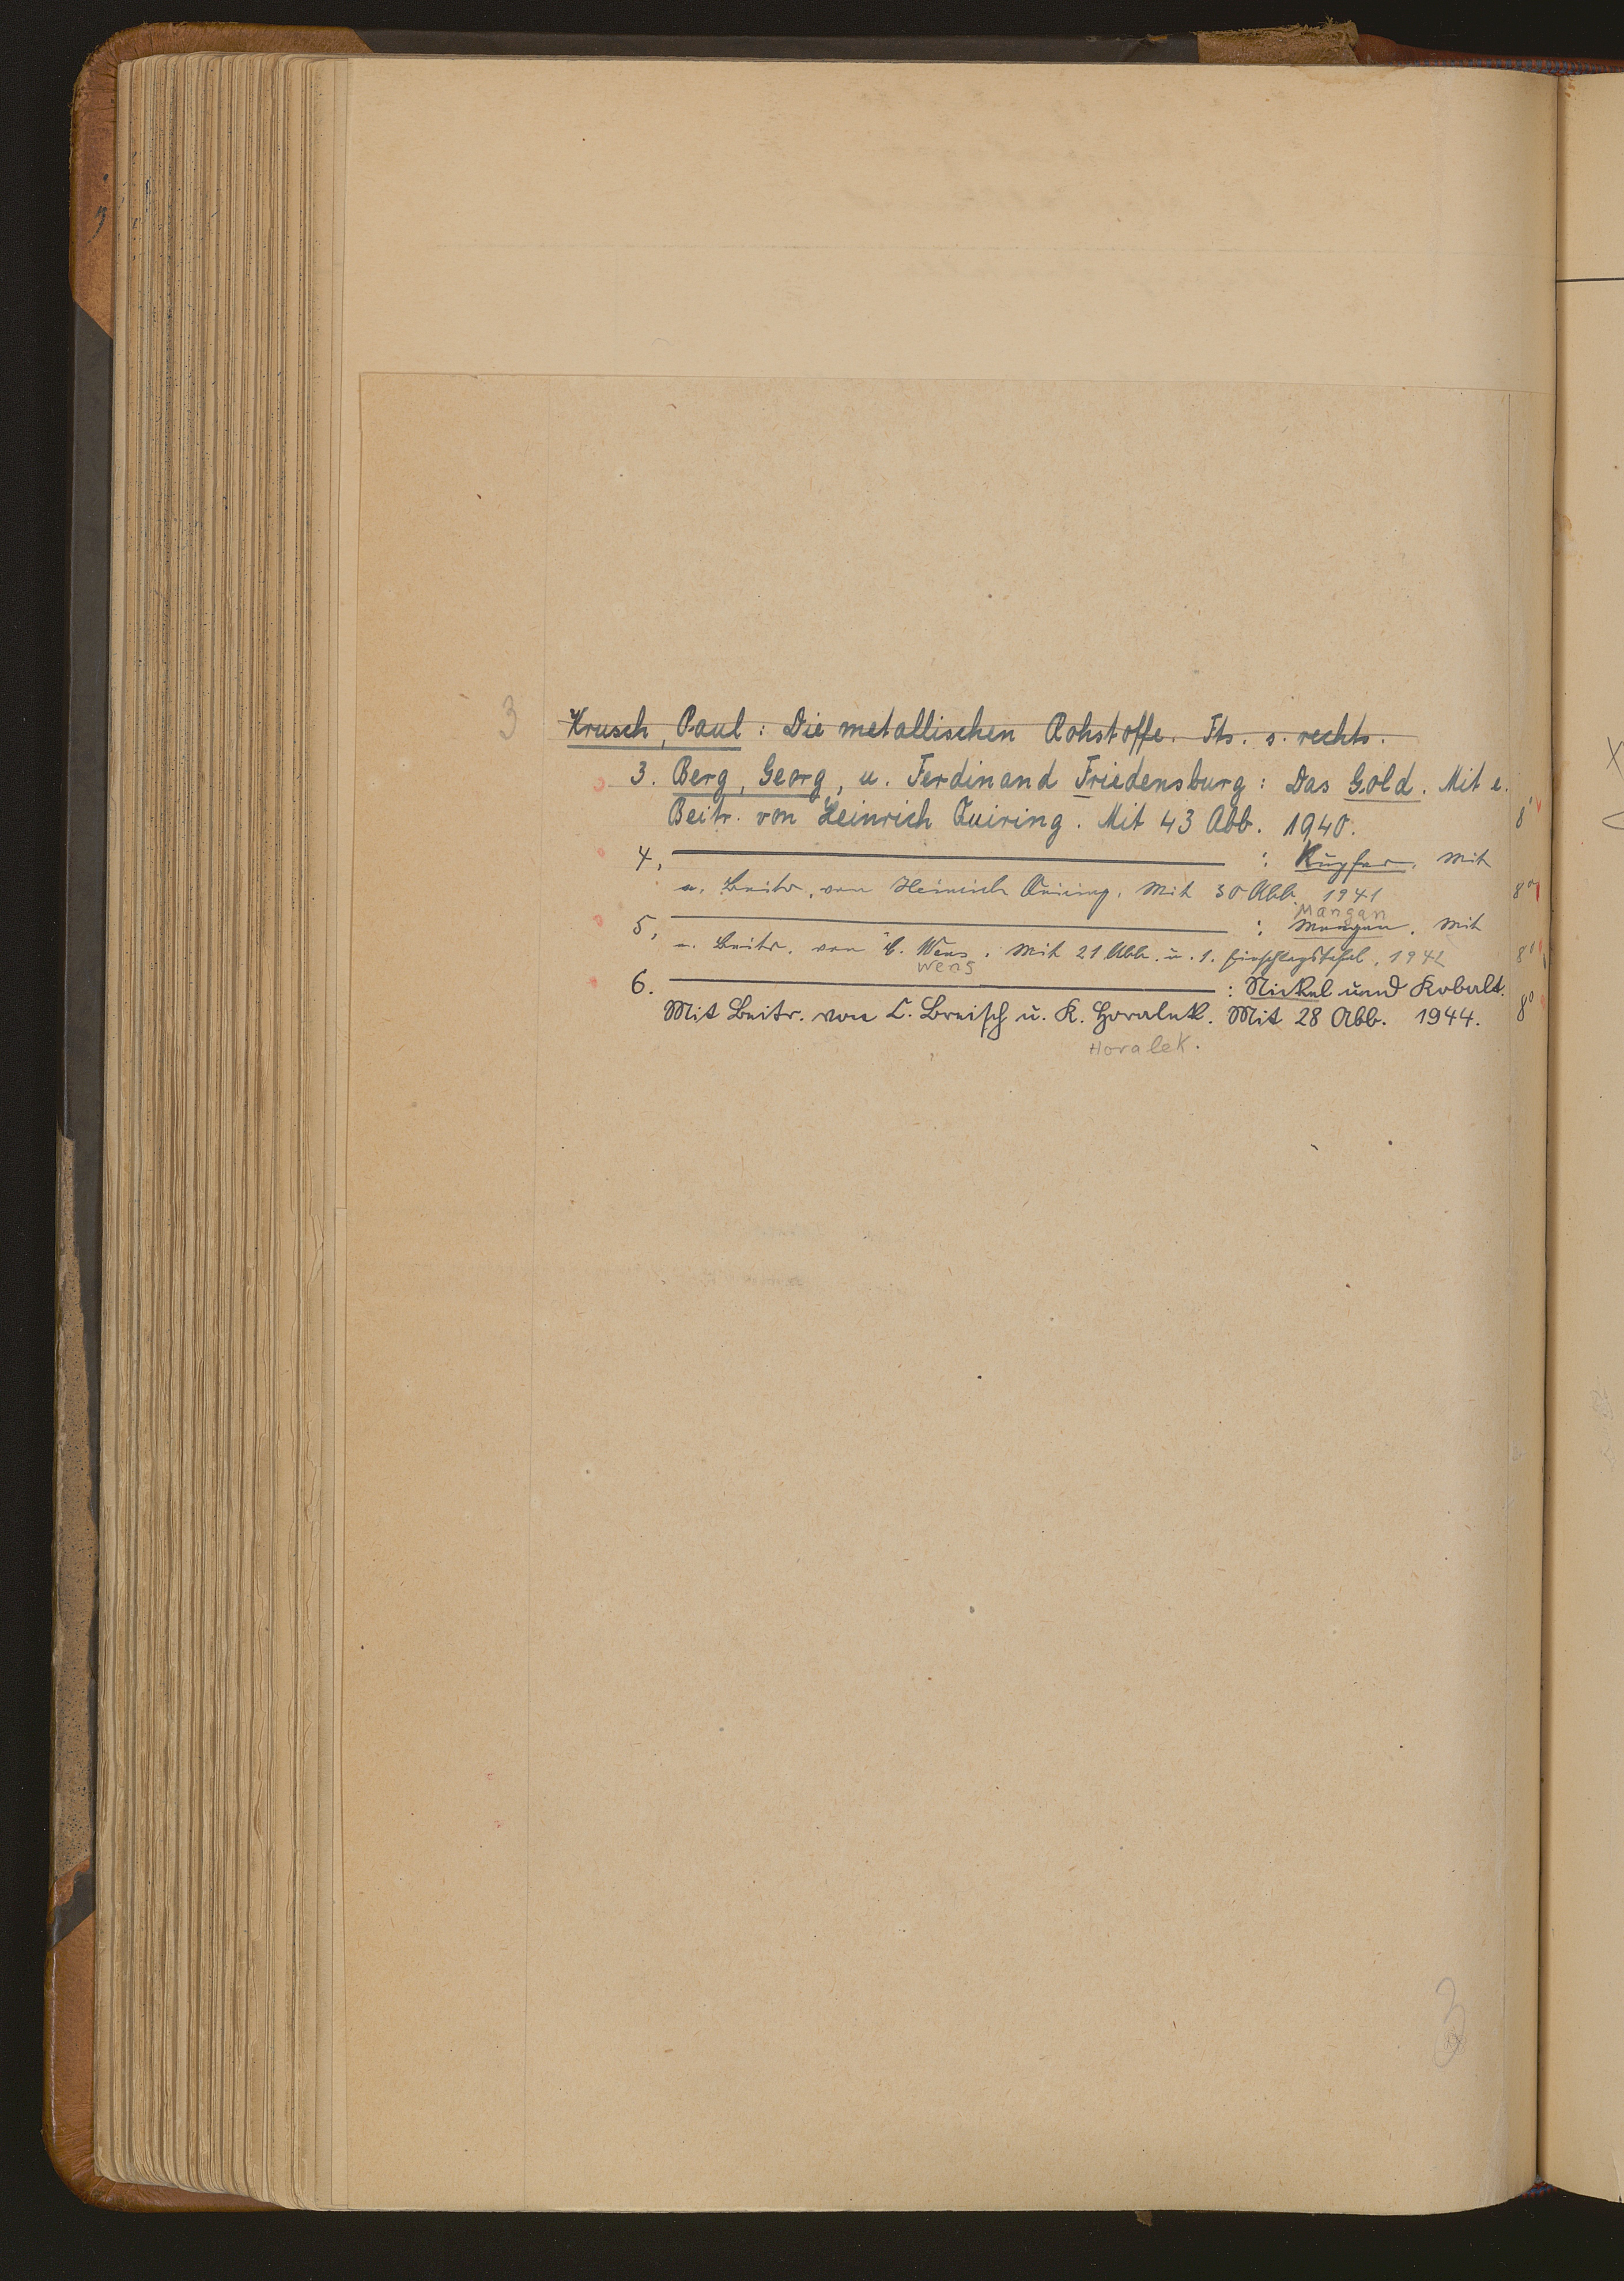 3 Krusch, Paul: Die metallischen Rohstoffe. Fts. s. rechts.
3. Berg, Georg, u. Ferdinand Friedensburg: Das Gold. Mit e.
Beitr. von Heinrich Quiring. Mit 43 Abb. 1940. 8°
4, ——— : Kupfer. Mit
e. Beitr. von Heinrich Quiring. Mit 30 Abb. 1941 8°
Mangan
5, ——— : Mangan. Mit
e. Beitr. von E. Wens. Mit 21 Abb. u. 1. Einschlagstafel. 1942 8°
Wens
6. ——— : Nickel und Kobalt.
Mit Beitr. von L. Breisch u. K. Horalek. Mit 28 Abb. 1944. 8°
Horalek.
3